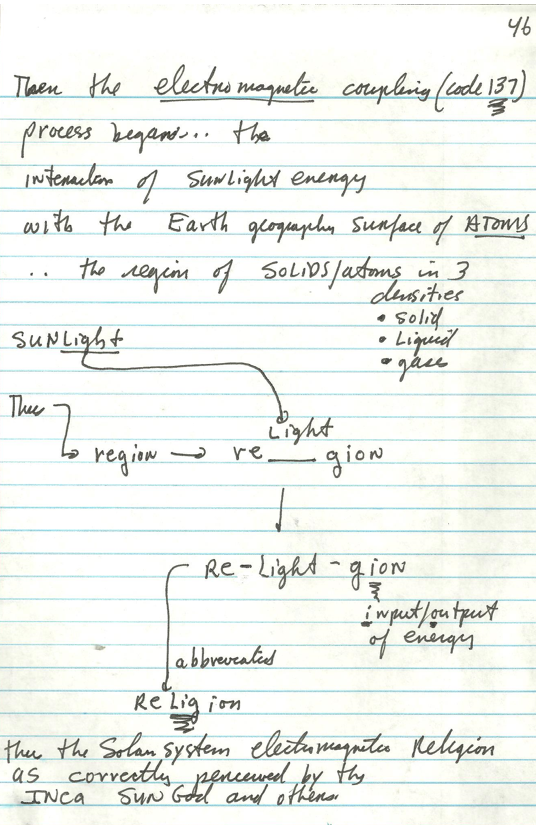 46
Then the electromagnetic coupling (code 137)
process began... the
interaction of SunLight energy
with the Earth geography surface of ATOMS
.. the region of SOLIDS/atoms in 3
densities
• Solid
• Liquid
• gase
SUNLight
Thee
Light
region → re ___ gion
Re-Light-gion
input/output
of energy
abbreviated
ReLigion
thu the Solar system electromagnetic Religion
as correctly perceived by the
INCA SUN God and others